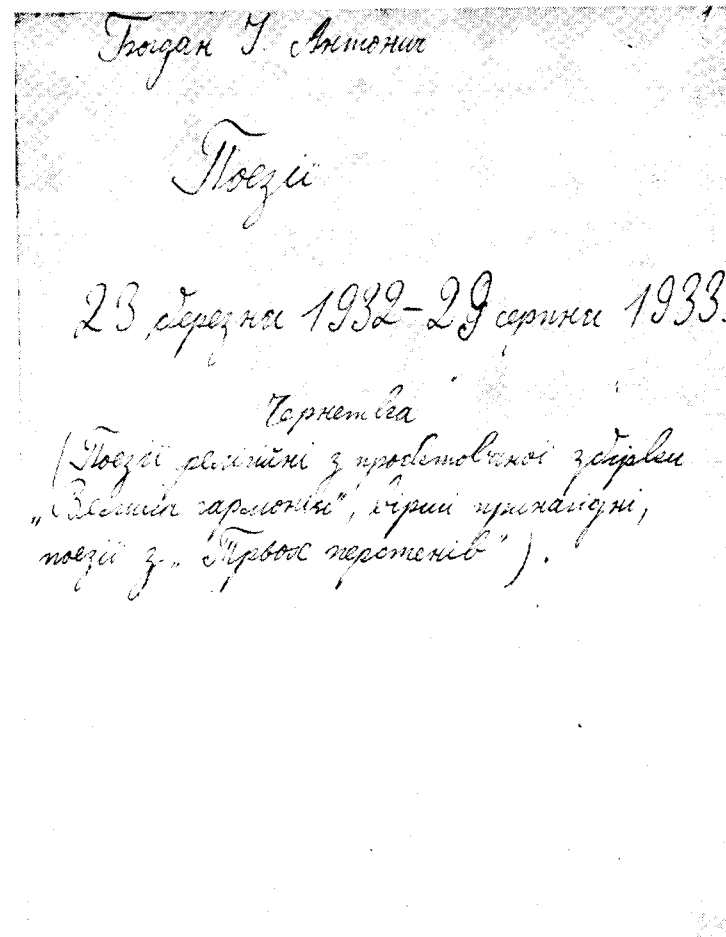 Богдан І. Антонич
Поезії
23 березня 1932–29 серпня 1933.
Чернетка
(Поезії релігійні з проєктованої збірки
„Велика гармонія", вірші принагідні,
поезії з „Трьох перстенів").